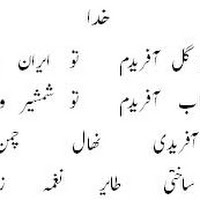 خدا
گل آفریدم تو ایران
آفریدم تو شمشیر و
آفریدی نهال چمن
ساختی طایر نغمه